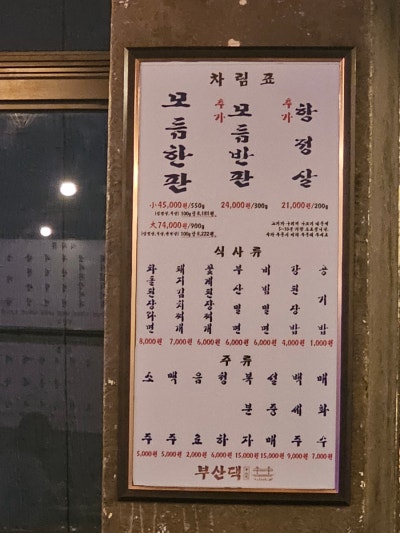 차림표
모듬한판
小 45,000원/550g
100g당 8,181원
大 74,000원/900g
100g당 8,222원
추가
모듬반판
24,000원/300g
추가
항정살
21,000원/200g
식사류
차돌된장라면
8,000원
돼지김치찌개
7,000원
꽃게된장찌개
6,000원
부산밀면
6,000원
비빔밀면
6,000원
강된장밥
4,000원
공기밥
1,000원
주류
소주
5,000원
맥주
5,000원
음료
2,000원
형하
6,000원
복분자
15,000원
설중매
15,000원
백세주
9,000원
매화수
7,000원
부산댁